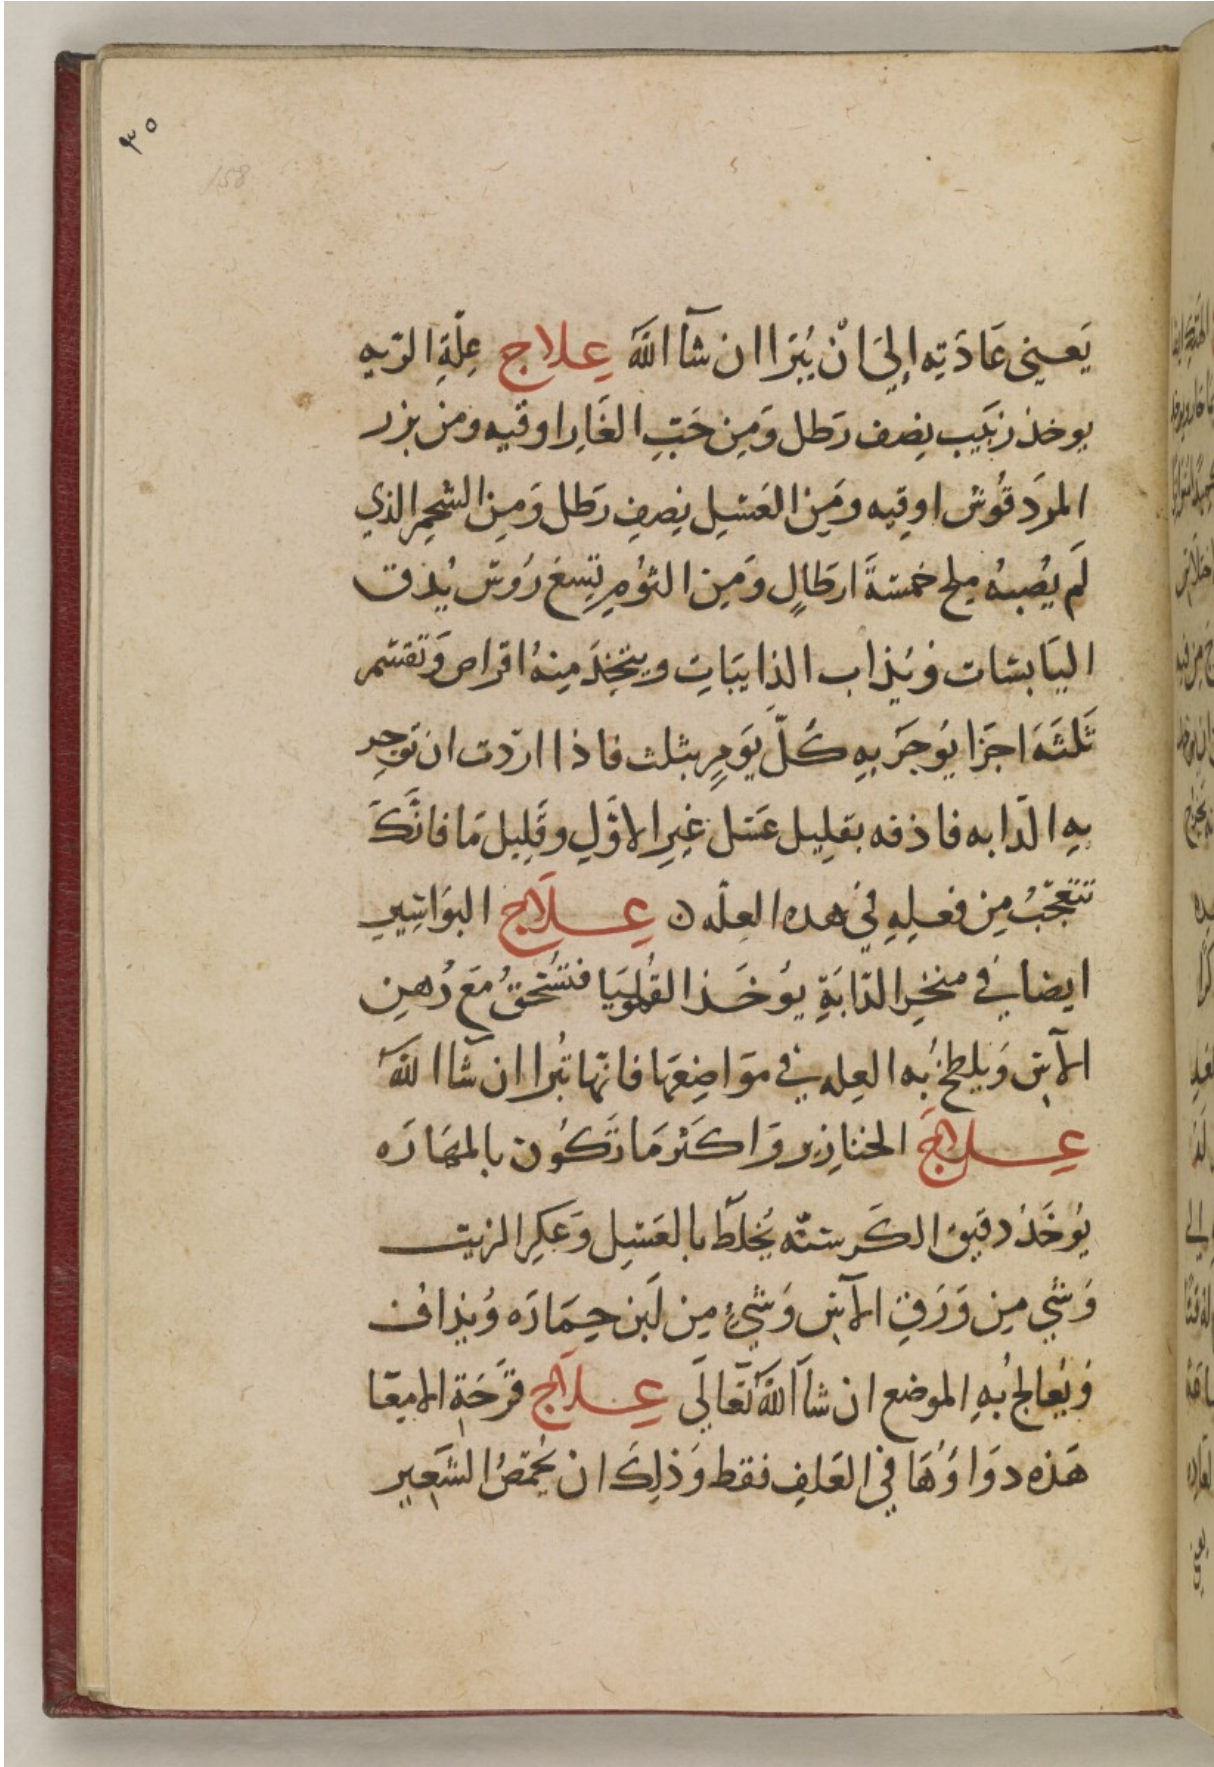 ٣٥
158
يَعني عَادَتِه إِليَ انّ يُبَرا ان شآ اللّه عِلاج عِلّةِ الرّيه
يوخذ زبَيب نِصف رَطل وَمِن حَبِّ الغَارِ اوقيه ومن بزر
المردَقوُش اوقِيه ومَِن العَسَِل نِصفِ رَطل وَمِن الشحِم الذي
لَم يُصبهُ مِلح خمسَةَ ارطَالٍ وَمِن الثوُمِ تِسِع رُوس يُدَق
اليَابسَات وَيُذاب الذايبَاتِ ويتخِذ مِنهُ اقراص وَتقسَم
ثَلثَهَ اجَزا يوُجَر بِهِ كُلّ يَومٍ بثلث فاذا ارَدت ان توُجِر
بِهِ الدّابه فاذفه بقلِيل عَسَل غيِر الاوَّلِ وقَلِيل مَا فانَّكَ
تتعجّبُ مِن فعلِهِ في هده العِلّه ن عِلَاج البوَاسِير
ايضا في منخِر الدّابَةِ يوُخَذ القُلموُيَا فتسُحَقُ مَعَ دُهِن
الآسِ وَيلطخُ بُه العِله في مَوَاضِعَهَا فانّها تبُرا ان شآ اللّهَ
عِلَاج الخنازِير وَاكثَر مَا تَكوُن بالمهَارَه
يوُخَذ دقيق الكَرسنّه يُخلَط بالعَسَِل وَعَكِر الزيت
وَشَي مِن وَرَقِ الآسِ وَشَيءِ مِن لَبن حِمَارَه وَيذافُ
وَيُعَالجُ بُهِ الموضع ان شآ اللّهَ تعَالَي عِلَاج قرَحَةِ الامِعَا
هَذه دوَاوُهَا في العَلفِ فقط وَذلِكَ ان يُحمَّصُ الشَّعِير